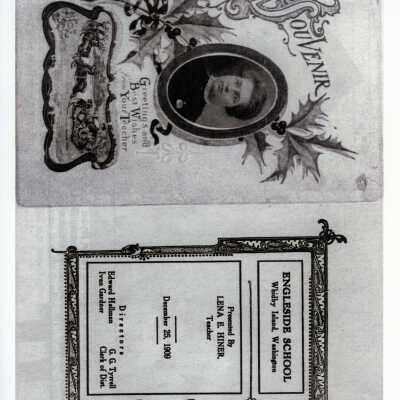 SOUVENIR
Greetings and
Best Wishes
from Your Teacher
ENGLESIDE SCHOOL
Whidby Island, Washington
Presented By
LENA E. HINER,
Teacher
December 25, 1909
Directors
Edward Hallman
Ivan Gardner
G. G. Tyrrell
Clerk of Dist.